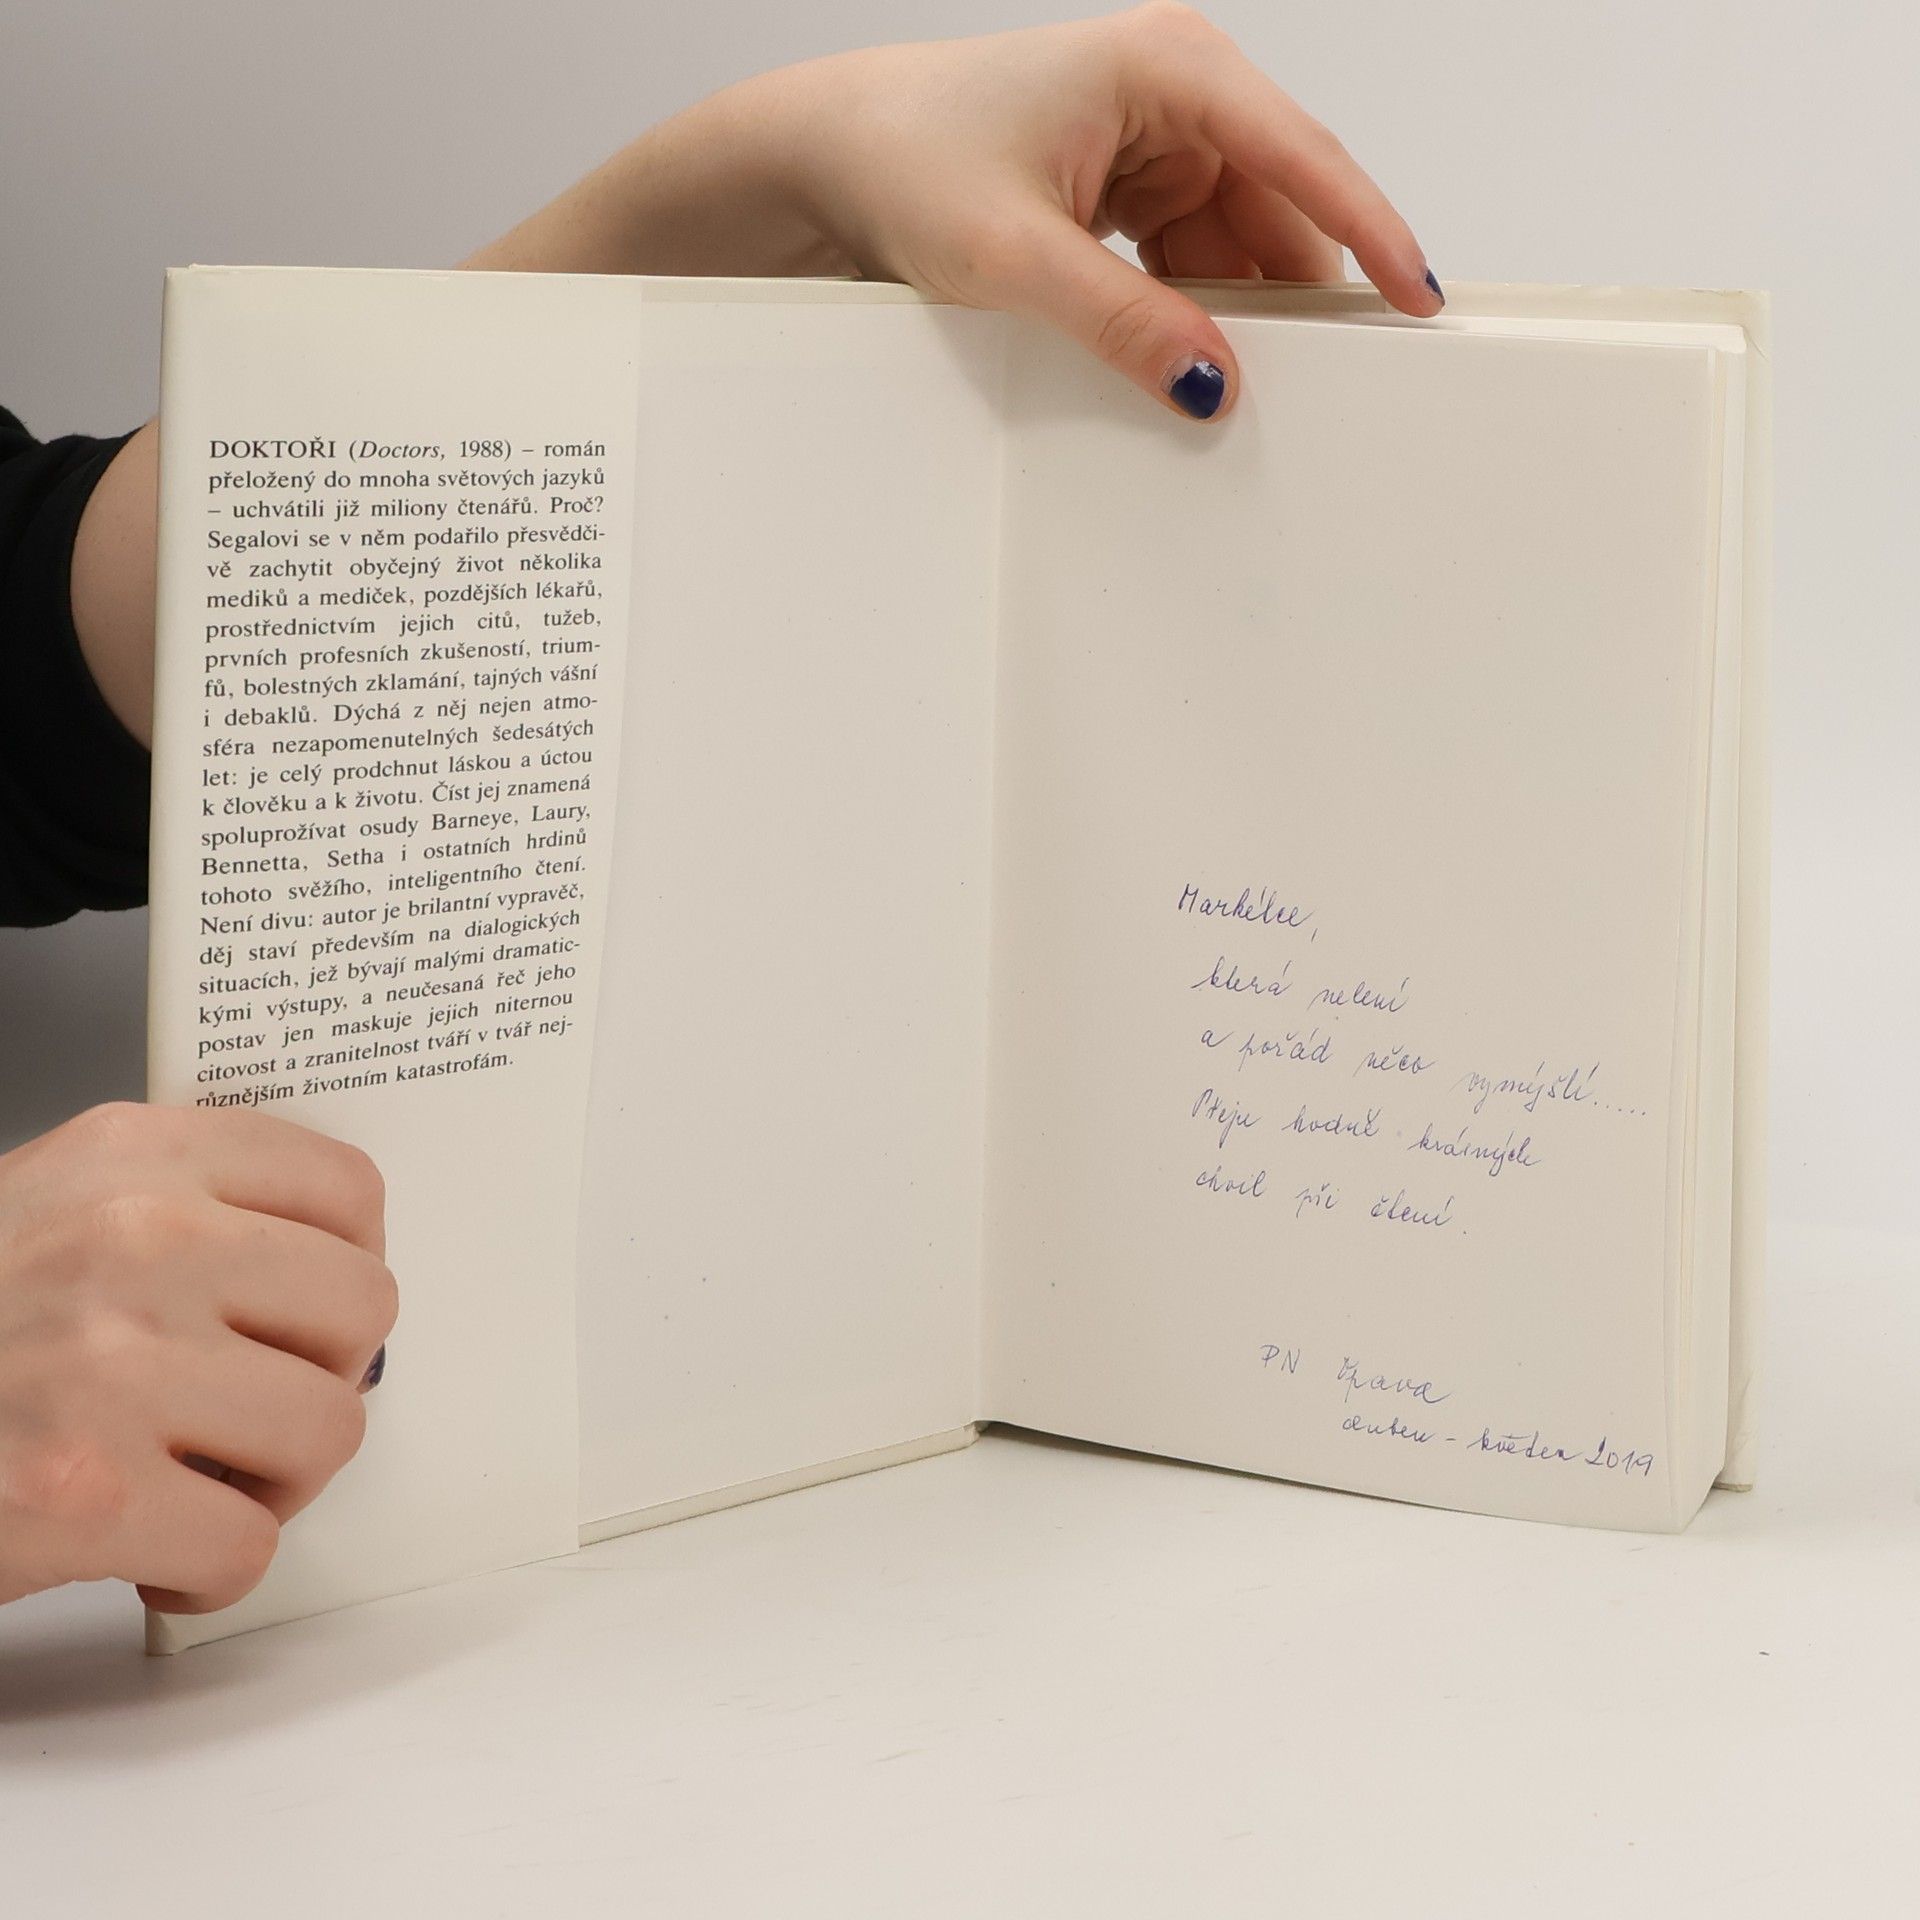 DOKTOŘI (Doctors, 1988) – román
přeložený do mnoha světových jazyků
– uchvátili již miliony čtenářů. Proč?
Segalovi se v něm podařilo přesvědči-
vě zachytit obyčejný život několika
mediků a mediček, pozdějších lékařů,
prostřednictvím jejich citů, tužeb,
prvních profesních zkušeností, trium-
fů, bolestných zklamání, tajných vášní
i debaklů. Dýchá z něj nejen atmo-
sféra nezapomenutelných šedesátých
let: je celý prodchnut láskou a úctou
k člověku a k životu. Číst jej znamená
spoluprožívat osudy Barneye, Laury,
Bennetta, Setha i ostatních hrdinů
tohoto svěžího, inteligentního čtení.
Není divu: autor je brilantní vypravěč,
děj staví především na dialogických
situacích, jež bývají malými dramatic-
kými výstupy, a neučesaná řeč jeho
postav jen maskuje jejich niternou
citovost a zranitelnost tváří v tvář nej-
různějším životním katastrofám.
Markétce,
která nelení
a pořád něco vymýšlí.....
Přeje hodně krásných
chvil při čtení.
PN Opava
duben - květen 2019